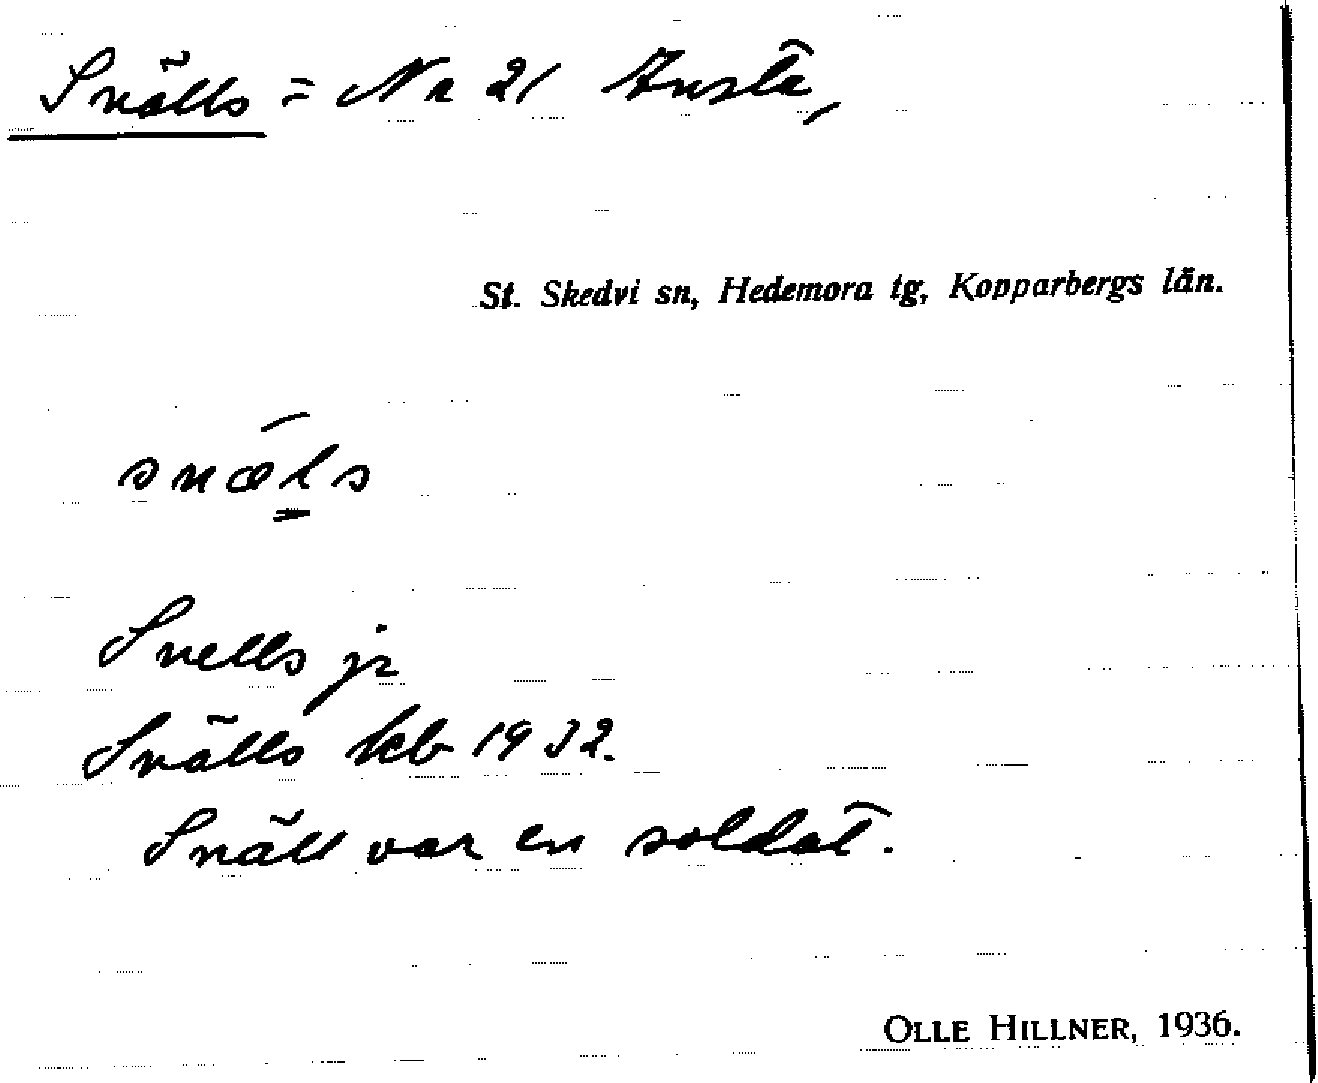 Snälls = Nr 21 Ansta,
St. Skedvi sn, Hedemora tg, Kopparbergs län.
snæls
Snells jr
Snälls kb 1932.
Snäll var en soldat.
OLLE HILLNER, 1936.